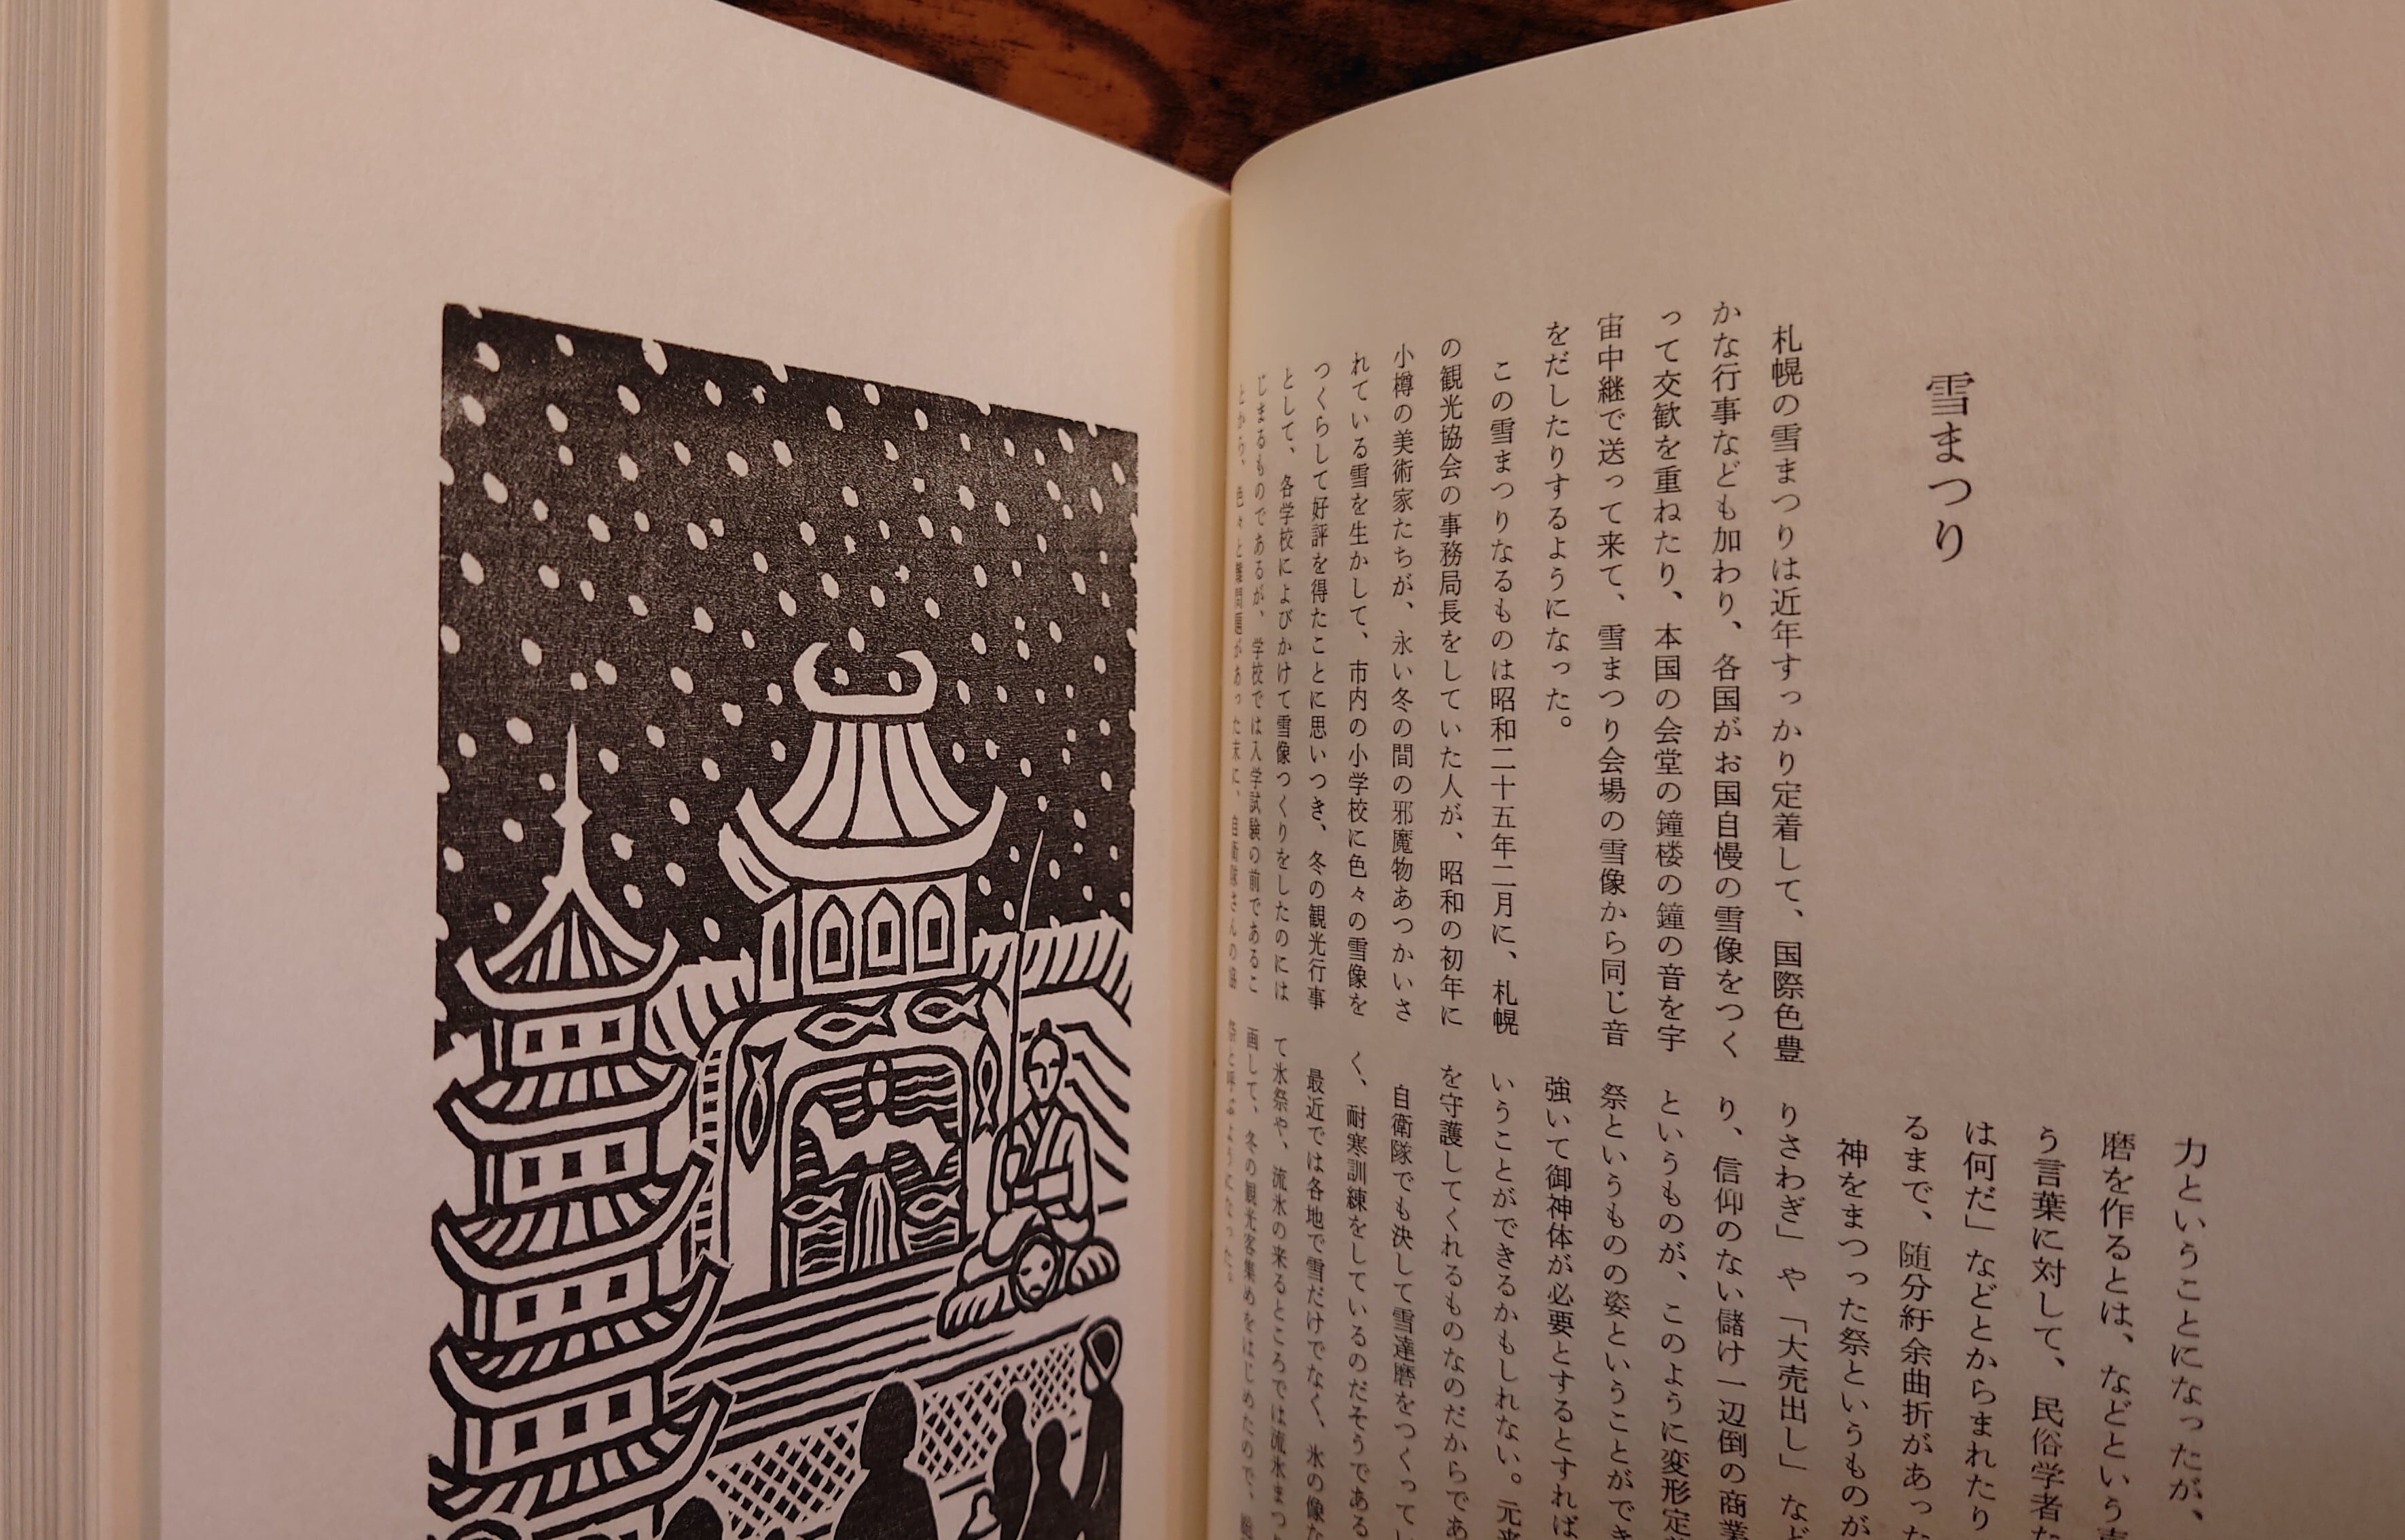 雪まつり
札幌の雪まつりは近年すっかり定着して、国際色豊
かな行事なども加わり、各国がお国自慢の雪像をつく
って交歓を重ねたり、本国の会堂の鐘楼の鐘の音を宇
宙中継で送って来て、雪まつり会場の雪像から同じ音
をだしたりするようになった。
この雪まつりなるものは昭和二十五年二月に、札幌
の観光協会の事務局長をしていた人が、昭和の初年に
小樽の美術家たちが、永い冬の間の邪魔物あつかいさ
れている雪を生かして、市内の小学校に色々の雪像を
つくらして好評を得たことに思いつき、冬の観光行事
として、各学校によびかけて雪像つくりをしたのには
じまるものであるが、学校では入学試験の前であるこ
とから、色々と難問題があった末に、自衛隊さんの協
力ということになったが、
磨を作るとは、などという
う言葉に対して、民俗学者
は何だ」などとからまれたり
るまで、随分紆余曲折があった
神をまつった祭というものが
りさわぎ」や「大売出し」など
り、信仰のない儲け一辺倒の商業
というものが、このように変形定
祭というものの姿ということができ
強いて御神体が必要とするとすれば
いうことができるかもしれない。元来
を守護してくれるものなのだからであ
自衛隊でも決して雪達磨をつくってい
く、耐寒訓練をしているのだそうである
最近では各地で雪だけでなく、氷の像な
て氷祭や、流氷の来るところでは流氷まつ
画して、冬の観光客集めをはじめたので、
祭と呼ぶようになった。